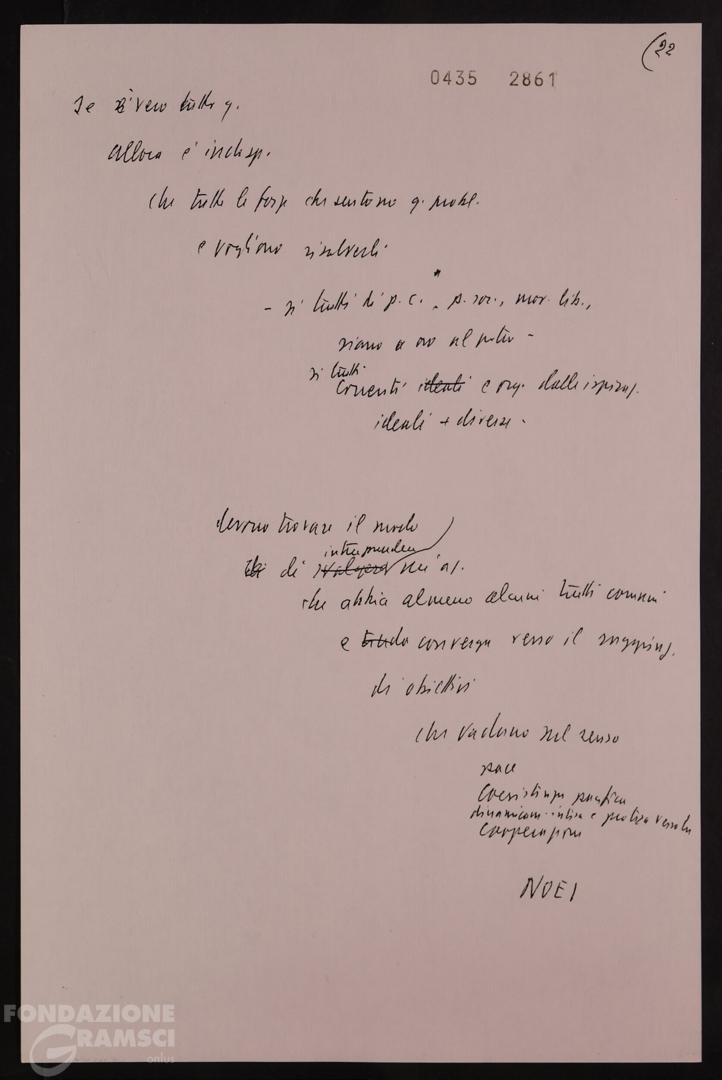 (22
0435 2861
Se è vero tutto q.
allora è indisp.
che tutte le forze che sentono q. probl.
e vogliono risolverli
- si tratti di p.c., p. soc., mov. lib.,
siano o no al potere -
si tratti
Correnti ideali e org. dalle ispiraz.
ideali + diverse -
devono trovare il modo
intraprendere
di un'az.
che abbia almeno alcuni tratti comuni
e tenda converga verso il raggiung.
di obiettivi
che vadano nel senso
pace
Coesistenza pacifica
dinamicam. intesa e protesa verso la
Cooperazione
NOEI
FONDAZIONE
GRAMSCI
onlus